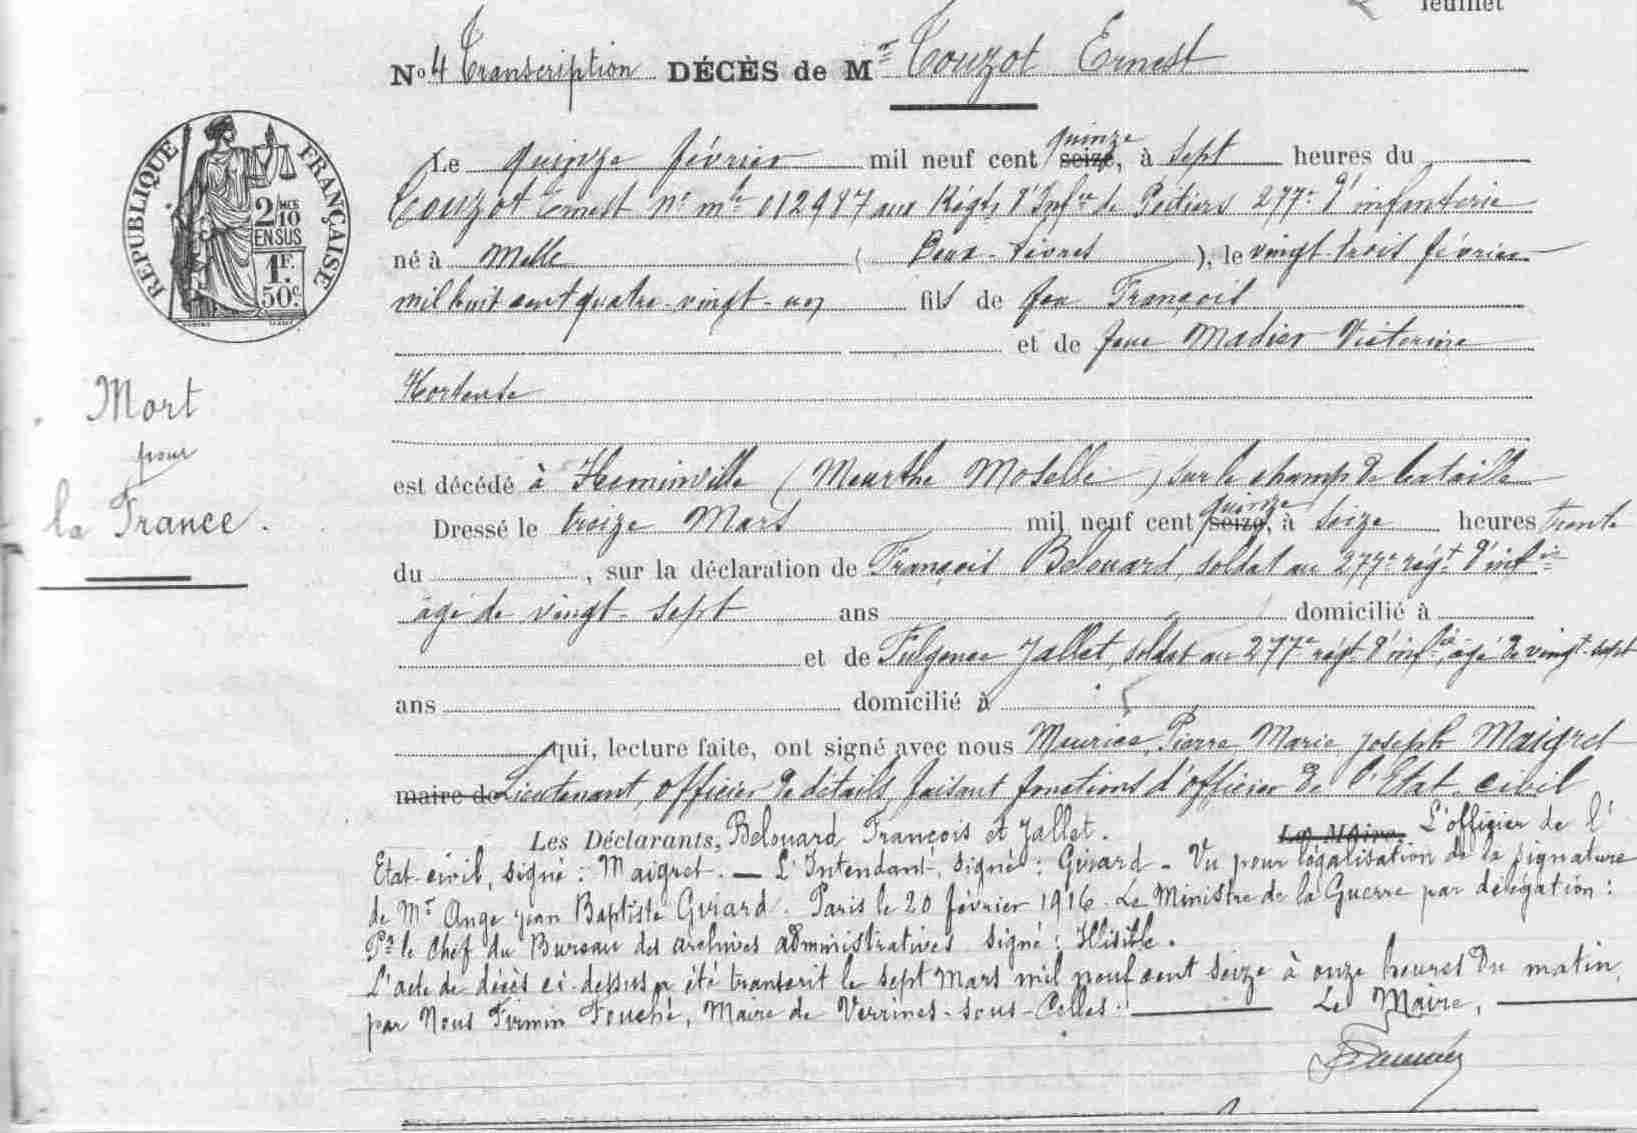 feuillet
No 4 Transcription DÉCÈS de Mr Couzot Ernest
RÉPUBLIQUE FRANÇAISE
2/10
EN SUS
1F.
50c.
Le quinze février mil neuf cent seize, quinze à sept heures du
Couzot Ernest No mle 012987 aux Régts d'Infie de Poitiers 277e d'infanterie
né à Melle ( Deux-Sèvres ), le vingt-trois février
mil huit cent quatre-vingt-un fils de feu François
et de feue Madier Victorine
Hortense
Mort
pour
la France.
est décédé à Heminville (Meurthe Moselle) sur le champ de bataille
Dressé le treize Mars mil neuf cent seize, quinze à seize heures trente
du , sur la déclaration de François Belouard, soldat au 277e régt d'infie
âgé de vingt-sept ans domicilié à
et de Fulgence Jallet, soldat au 277e régt d'infie, âgé de vingt-sept
ans domicilié à
qui, lecture faite, ont signé avec nous Maurice, Pierre Marie Joseph Maigret
maire de Lieutenant, officier de détails, faisant fonctions d'officier de l'Etat-civil
Les Déclarants, Belouard François et Jallet. Le Maire, L'officier de l'
Etat-civil, signé : Maigret. — L'Intendant, signé : Girard - Vu pour légalisation de la signature
de Mr Ange Jean Baptiste Girard. Paris le 20 février 1916. Le Ministre de la Guerre par délégation :
Pr le Chef du Bureau des archives administratives signé : Illisible.
L'acte de décès ci-dessus a été transcrit le sept Mars mil neuf cent seize à onze heures du matin,
par Nous Firmin Fouché, Maire de Verrines-sous-Celles. Le Maire,